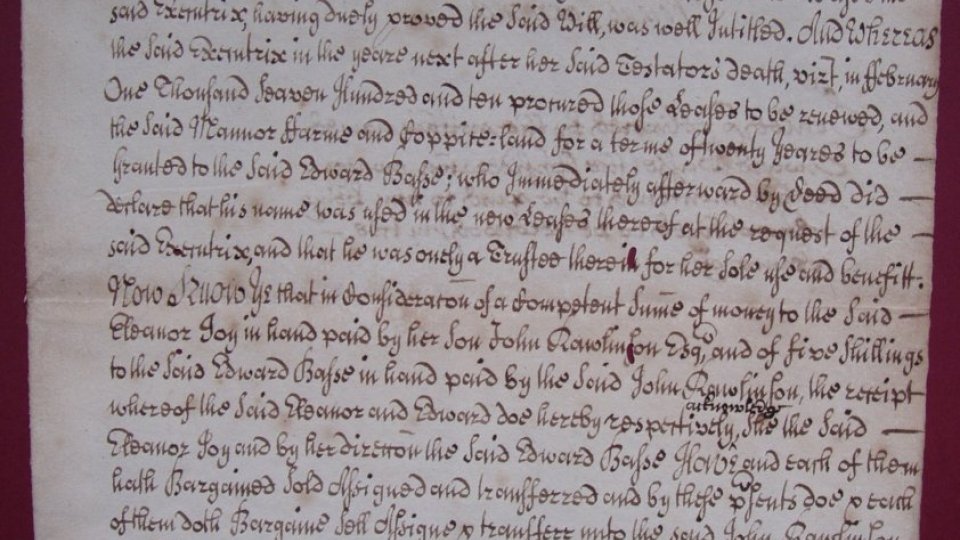 said Executrix, having duely proved the said Will, was well Intitled. And Whereas
the said Executrix in the yeare next after her said Testators death, vizt, in ffebruary
One Thousand Seaven Hundred and ten procured those Leases to be renewed, and
the said Mannor ffarme and Coppiterland for a terme of twenty Yeares to be —
Granted to the said Edward Basse; who Immediately afterward by Deed did —
declare that his name was used in the new Leases thereof at the request of the —
said Executrix, and that he was onely a Trustee therein for her Sole use and benefitt.
Now Know Ye that in Consideracon of a Competent Sume of money to the said —
Eleanor Joy in hand paid by her Son John Rawlinson Esqr, and of five Shillings
to the said Edward Basse in hand paid by the said John Rawlinson, the receipt
whereof the said Eleanor and Edward doe hereby respectively acknowledge, She the said —
Eleanor Joy and by her direccon the said Edward Basse Have and each of them
hath Bargained Sold Assigned and transferred and by these psents doe & each
of them doth Bargaine Sell Assigne & transferr unto the said John Rawlinson